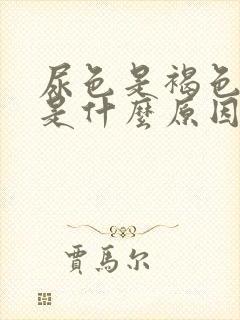 尿色是褐色
是什麼原因
賈馬尔